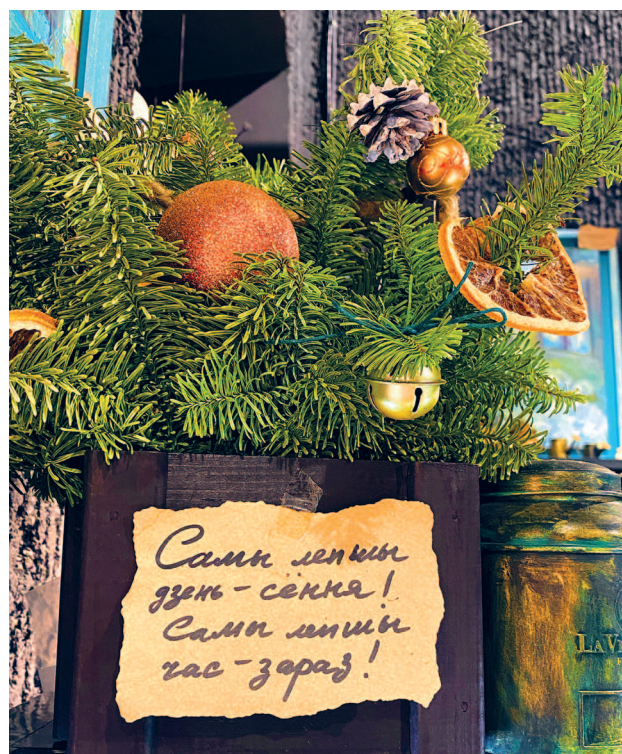 Самы лепшы
дзень – сёння!
Самы лепшы
час – зараз!